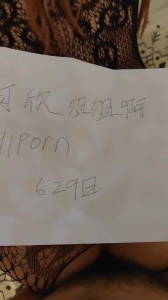 欣姐姐啊
porn
6.29日